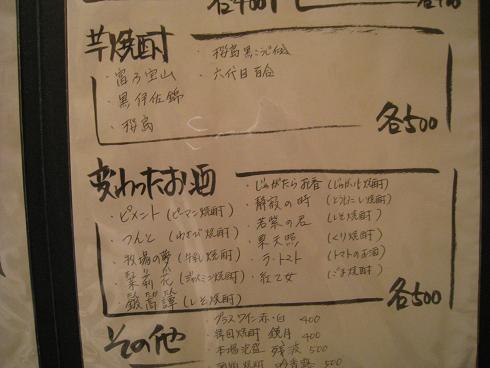 各400
芋焼酎
・富乃宝山
・黒伊佐錦
・桜島
・桜島黒
・六代目百合
各500
変わったお酒
・ピメント (ピーマン焼酎)
・つんと (わさび焼酎)
・牧場の夢 (牛乳焼酎)
・茉莉花 (ジャスミン焼酎)
・鍛高譚 (しそ焼酎)
・じゃがたらお春 (じゃがいも焼酎)
・静寂の時 (とうもろこし焼酎)
・若紫の君 (しそ焼酎)
・栗天照 (くり焼酎)
・ラ・トマト (トマトのお酒)
・紅乙女 (ごま焼酎)
各500
その他
グラスワイン赤・白 400
韓国焼酎 鏡月 400
本場泡盛 残波 500